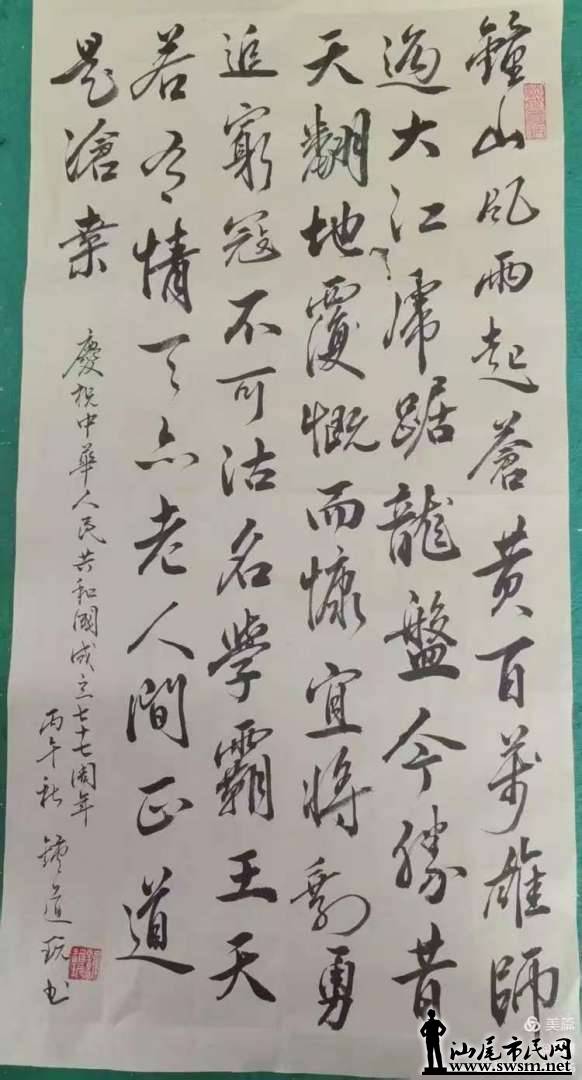 鐘山风雨起蒼黄百萬雄師
過大江虎踞龍盤今勝昔
天翻地覆慨而慷宜將剩勇
追窮寇不可沽名學霸王天
若有情天亦老人間正道
是滄桑
慶祝中華人民共和國成立七十七周年
丙午秋 鍾道玩书
美篇
汕尾市民网
www.swsm.net